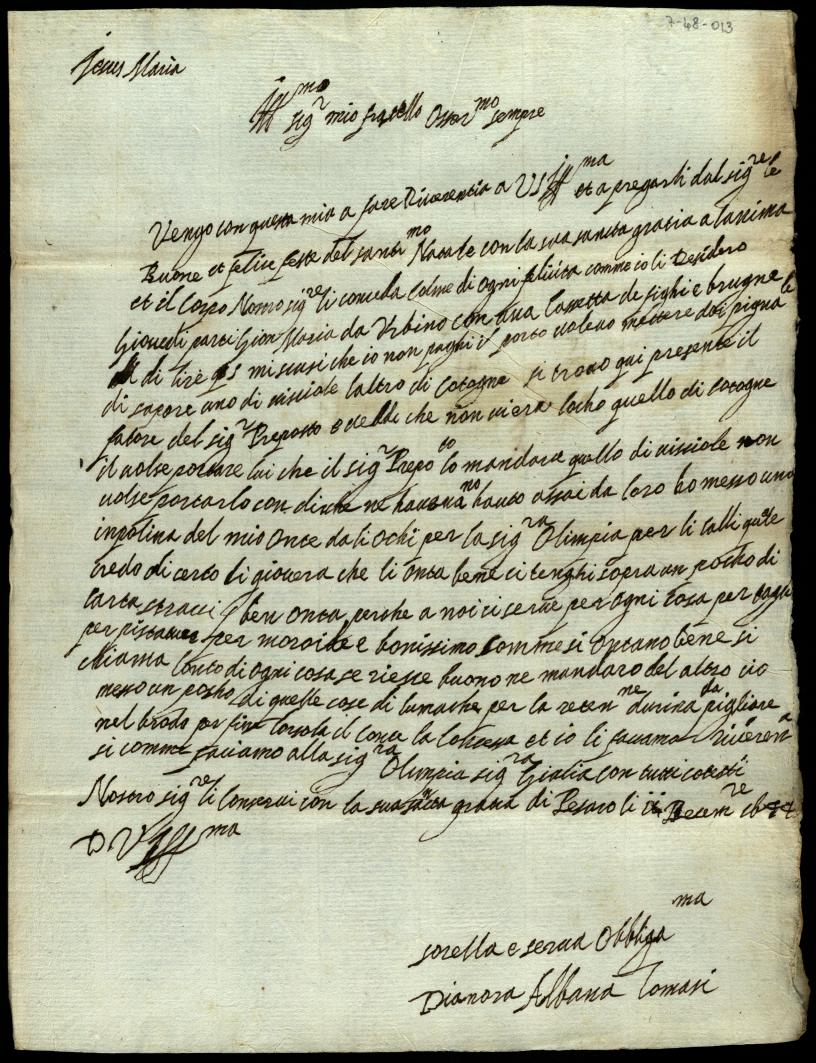 7-48-013
Jesus Maria
Ill mo sig r mio fratello Osser mo sempre
Vengo con questa mia a fare Riverentia a VS Ill ma et a pregarli dal sig re le
Buone et felice feste del santi mo Natale con la sua santa gratia a lanima
et il Corpo Nostro sig re li conceda colme di ogni felicita comme io li Desidero
Giovedi parti Gion Maria da Urbino con una Cassetta de fighi e brugne le
di lire mi scusi che io non paghi il porto volevo mettere doi pignate
di sapore uno di visciole laltro di Cotogne si trovo qui presente il
fatore del sig r Preposto e vedde che non viera locho quello di cotogne
il volse portare lui che il sig r Prepo to lo mandara quello di visciole non
volse portarlo con dirche ne havana no hauto assai da loro ho messo una
inpolina del mio Onto da li ochi per la sig ra Olimpia per li calli quale
credo di certo li giovera che li onta bene ci tenghi sopra un pocho di
carta straci ben onta perche a noi ci serve per ogni cosa per tagli
per per moroide e bonissimo comme si ontano bene si
chiama Onto di ogni cosa se riesce buono ne mandaro del altro cio
messo un pocho di quelle cose di lumache per la reten ne durina da pigliare
nel brodo per fine la Contessa et io li facemo riveren a
si comme faciamo alla sig ra Olimpia sig ra Giulia con tutti cotesti
Nostro sig re li Conservi con la sua santa gratia di Pesaro li Decem re
D V S Ill ma
sorella e serva Obbliga ma
Dianora Albana Tomasi